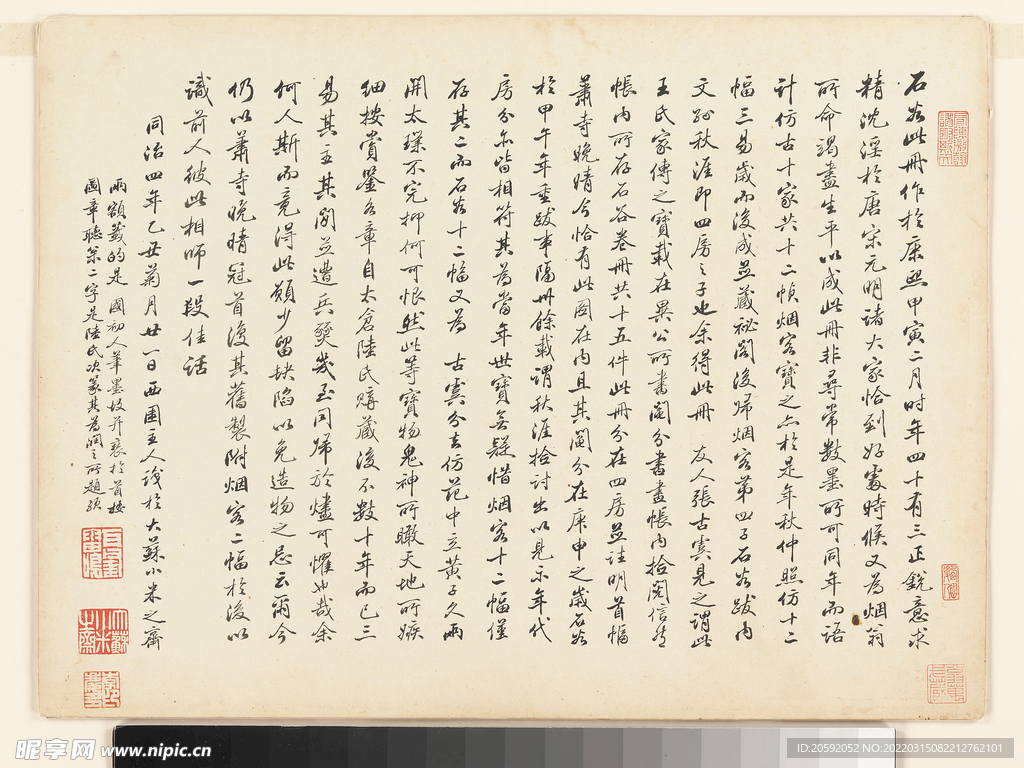 石谷此冊作於康熙甲寅二月時年四十有三正銳意求
精沈淫於唐宋元明諸大家恰到好處時候又為烟翁
所命竭盡生平以成此冊非尋常數墨所可同年而語
計仿古十家共十二幀烟客寶之亦於是年秋仲照仿十二
幅三易歲而後成並藏祕閣後歸烟客第四子石谷跋內
文孙秋涯即四房之子也余得此冊 友人張古雲見之謂此
王氏家傳之寶載在異公所書鬮分書畫帳內拾閱信然
帳內所存石谷卷冊共十五件此冊分在四房並註明首幅
蕭寺晚晴今恰有此圖在內且其鬮分在庚申之歲石谷
於甲午年重跋事隔卅餘載謂秋涯拾討出以見示年代
房分亦皆相符其為當年世寶無疑惜烟客十二幅僅
存其二而石谷十二幅又為 古雲分去仿范中立黃子久兩
開太璞不完抑何可恨然此等寶物鬼神所瞰天地所嫉
細按賞鑒各章自太倉陸氏購藏後不數十年而已三
易其主其間並遭兵燹幾至同歸於燼可懼也哉余
何人斯而竟得此願少留缺陷以免造物之忌云爾今
仍以蕭寺晚晴冠首復其舊製附烟客二幅於後以
識前人彼此相師一段佳話
同治四年乙丑菊月廿一日西圃主人識於大蘇小米之齋
兩額籤的是國初人筆墨故并裱於首按
圖章聽梟二字是陸氏次篆其為潤之所題歟
昵享网 www.nipic.cn
ID:20592052 NO:20220315082212762101